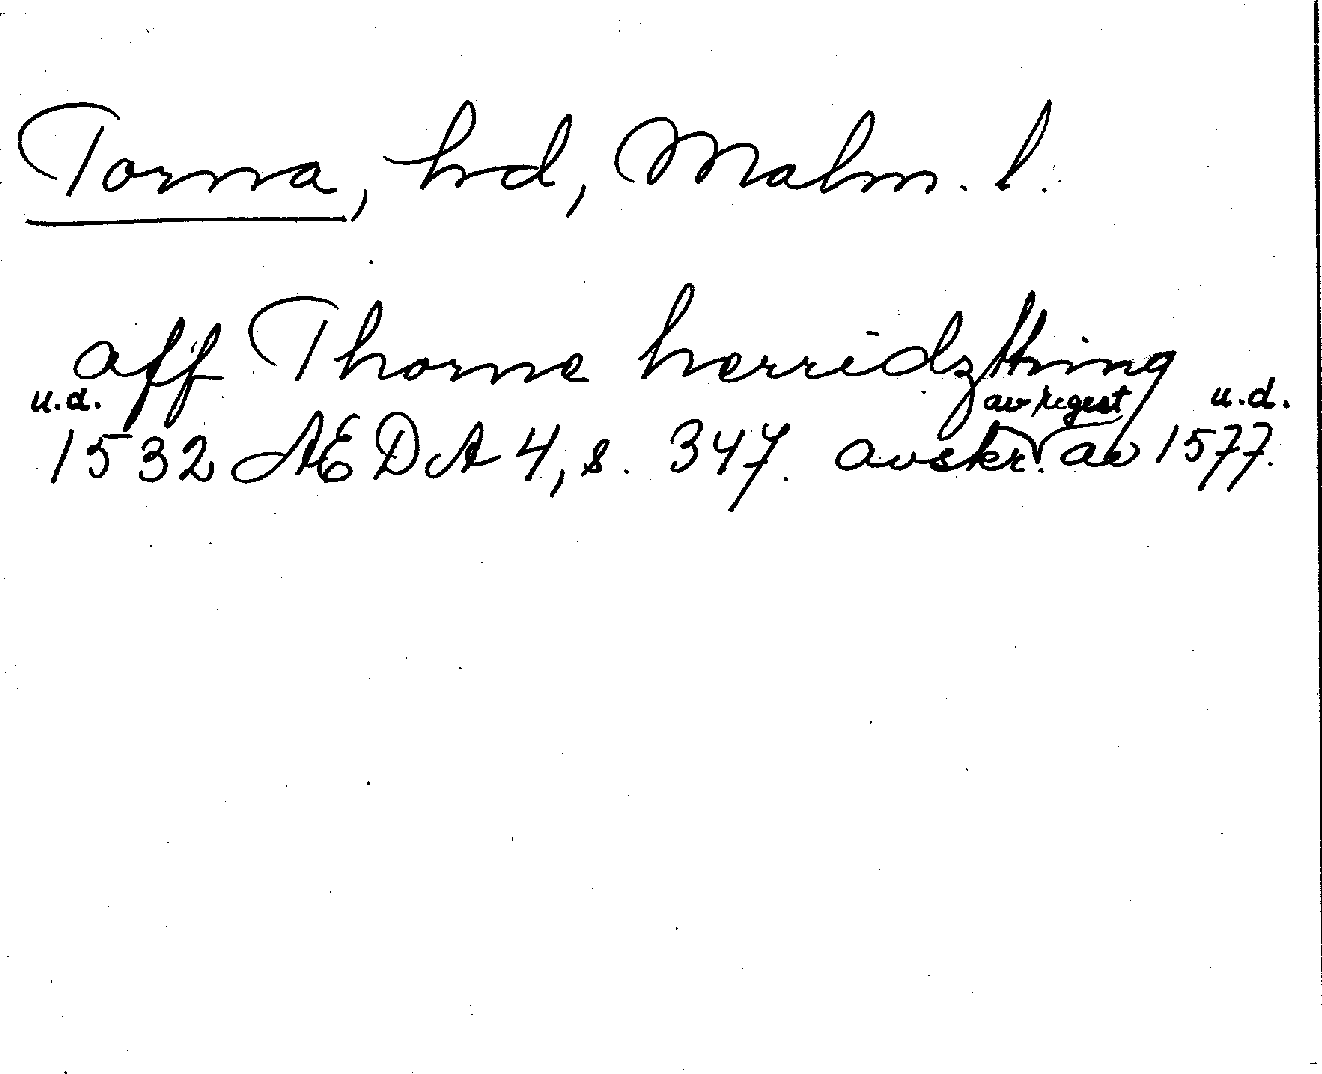 Torna, hd, Malm. l.
aff Thorne herridzthing
u.d. av regest u.d.
1532 AEDA 4, s. 347. avskr. av 1577.